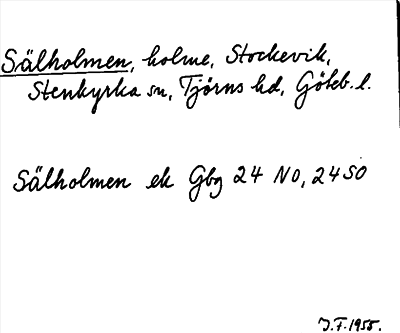 Sälholmen, holme, Stockevik,
Stenkyrka sn, Tjörns hd, Göteb. l.
Sälholmen ek Gbg 24 NO, 24 SO
J.F. 1955.